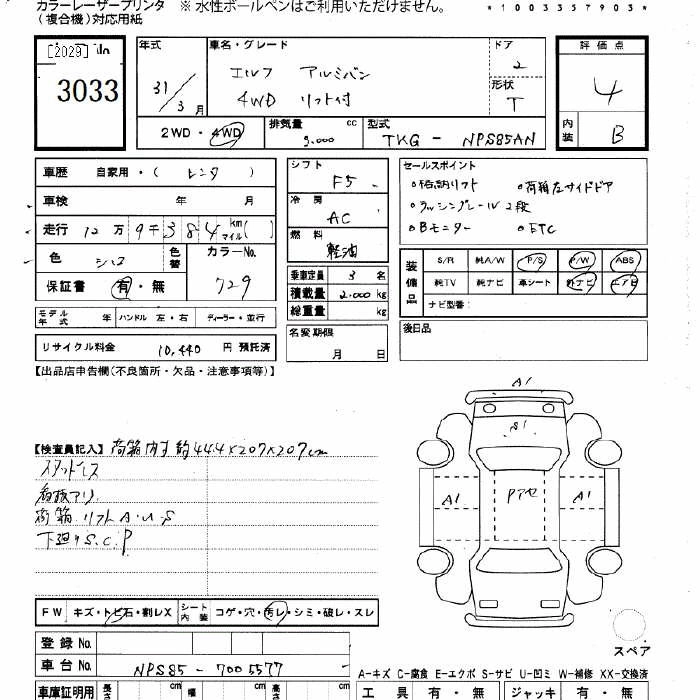 カラーレーザープリンタ ※ 水性ボールペンはご利用いただけません。
(複合機)対応用紙
*1003357903*
[2029]
3033
年式 31/3月
車名・グレード エルフ アルミバン
4WD リフト付
ドア 2
形状 T
2WD・4WD
排気量 3.000 cc
型式 TKG - NPS85AN
評価点 4
内装 B
車歴 自家用・( レンタ )
車検 年 月
走行 12万9千384 km マイル( )
色 シロ 色替 カラーNo. 729
保証書 有・無
モデル年式 年 ハンドル 左・右 ディーラー・並行
リサイクル料金 10,440 円 預託済
シフト F5
冷房 AC
燃料 軽油
乗車定員 3 名
積載量 2.000 kg
総重量 kg
名変期限 月 日
セールスポイント
○格納リフト ○荷箱左サイドドア
○ラッシングレール2段
○Bモニター ○ETC
装備品
S/R 純A/W P/S P/W ABS
純TV 純ナビ 革シート 外ナビ エアB
ナビ型番:
後日品
【出品店申告欄(不良箇所・欠品・注意事項等)】
【検査員記入】荷箱内寸約444×207×207cm
スタッドレス
看板アリ
荷箱.リフトA.U.S
下廻りS.C.P
A1
S1
A1 Pアセ A1
スペア
FW キズ・トビ石・割レX シート内装 コゲ・穴・汚レ・シミ・破レ・スレ
登録No.
車台No. NPS85 - 7005577
A-キズ C-腐食 E-エクボ S-サビ U-凹ミ W-補修 XX-交換済
車庫証明用 長さ cm 幅 cm 高さ cm
工具 有・無 ジャッキ 有・無